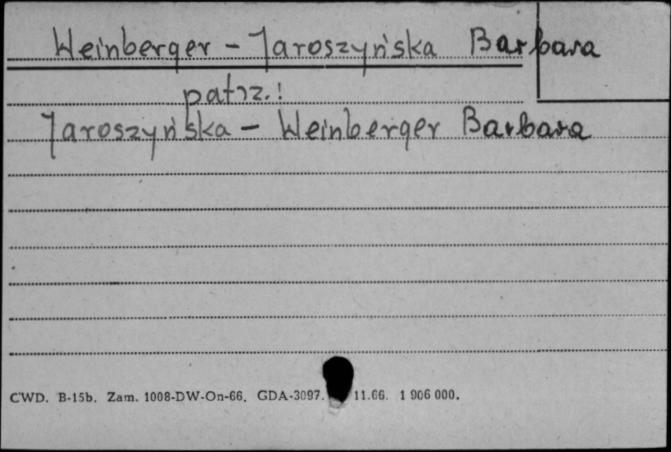 Weinberger - Jaroszyńska Barbara
patrz.!
Jaroszyńska - Weinberger Barbara
CWD. B-15b. Zam. 1008-DW-On-66. GDA-3097. 11.66. 1 906 000.